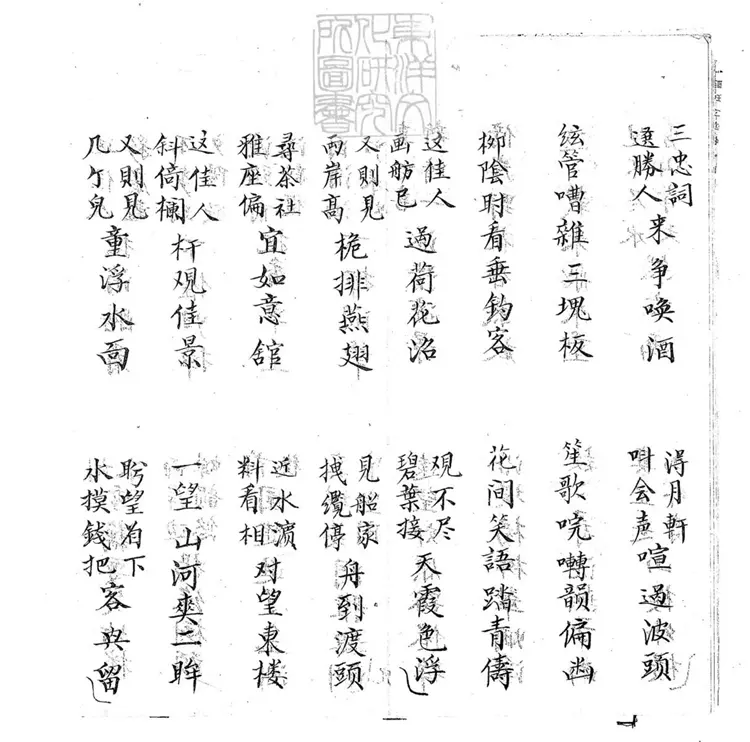 東洋文化研究所圖書
三忠詞遶勝人来争喚酒
淂月軒呌会声喧過波頭
絃管嘈雜三塊板
笙歌唍囀韻偏幽
栁陰时看垂釣客
花间笑語踏青儔
这佳人画舫已過荷花沼
观不尽碧葉接天霞色浮
又則見两岸髙桅排燕翅
見船家拽纜停舟到渡頭
尋茶社雅座偏宜如意舘
近水濵料看相对望東楼
这佳人斜倚欄杆观佳景
一望山河爽二眸
又則見几个兒童浮水面
盻望着下水摸錢把客央留